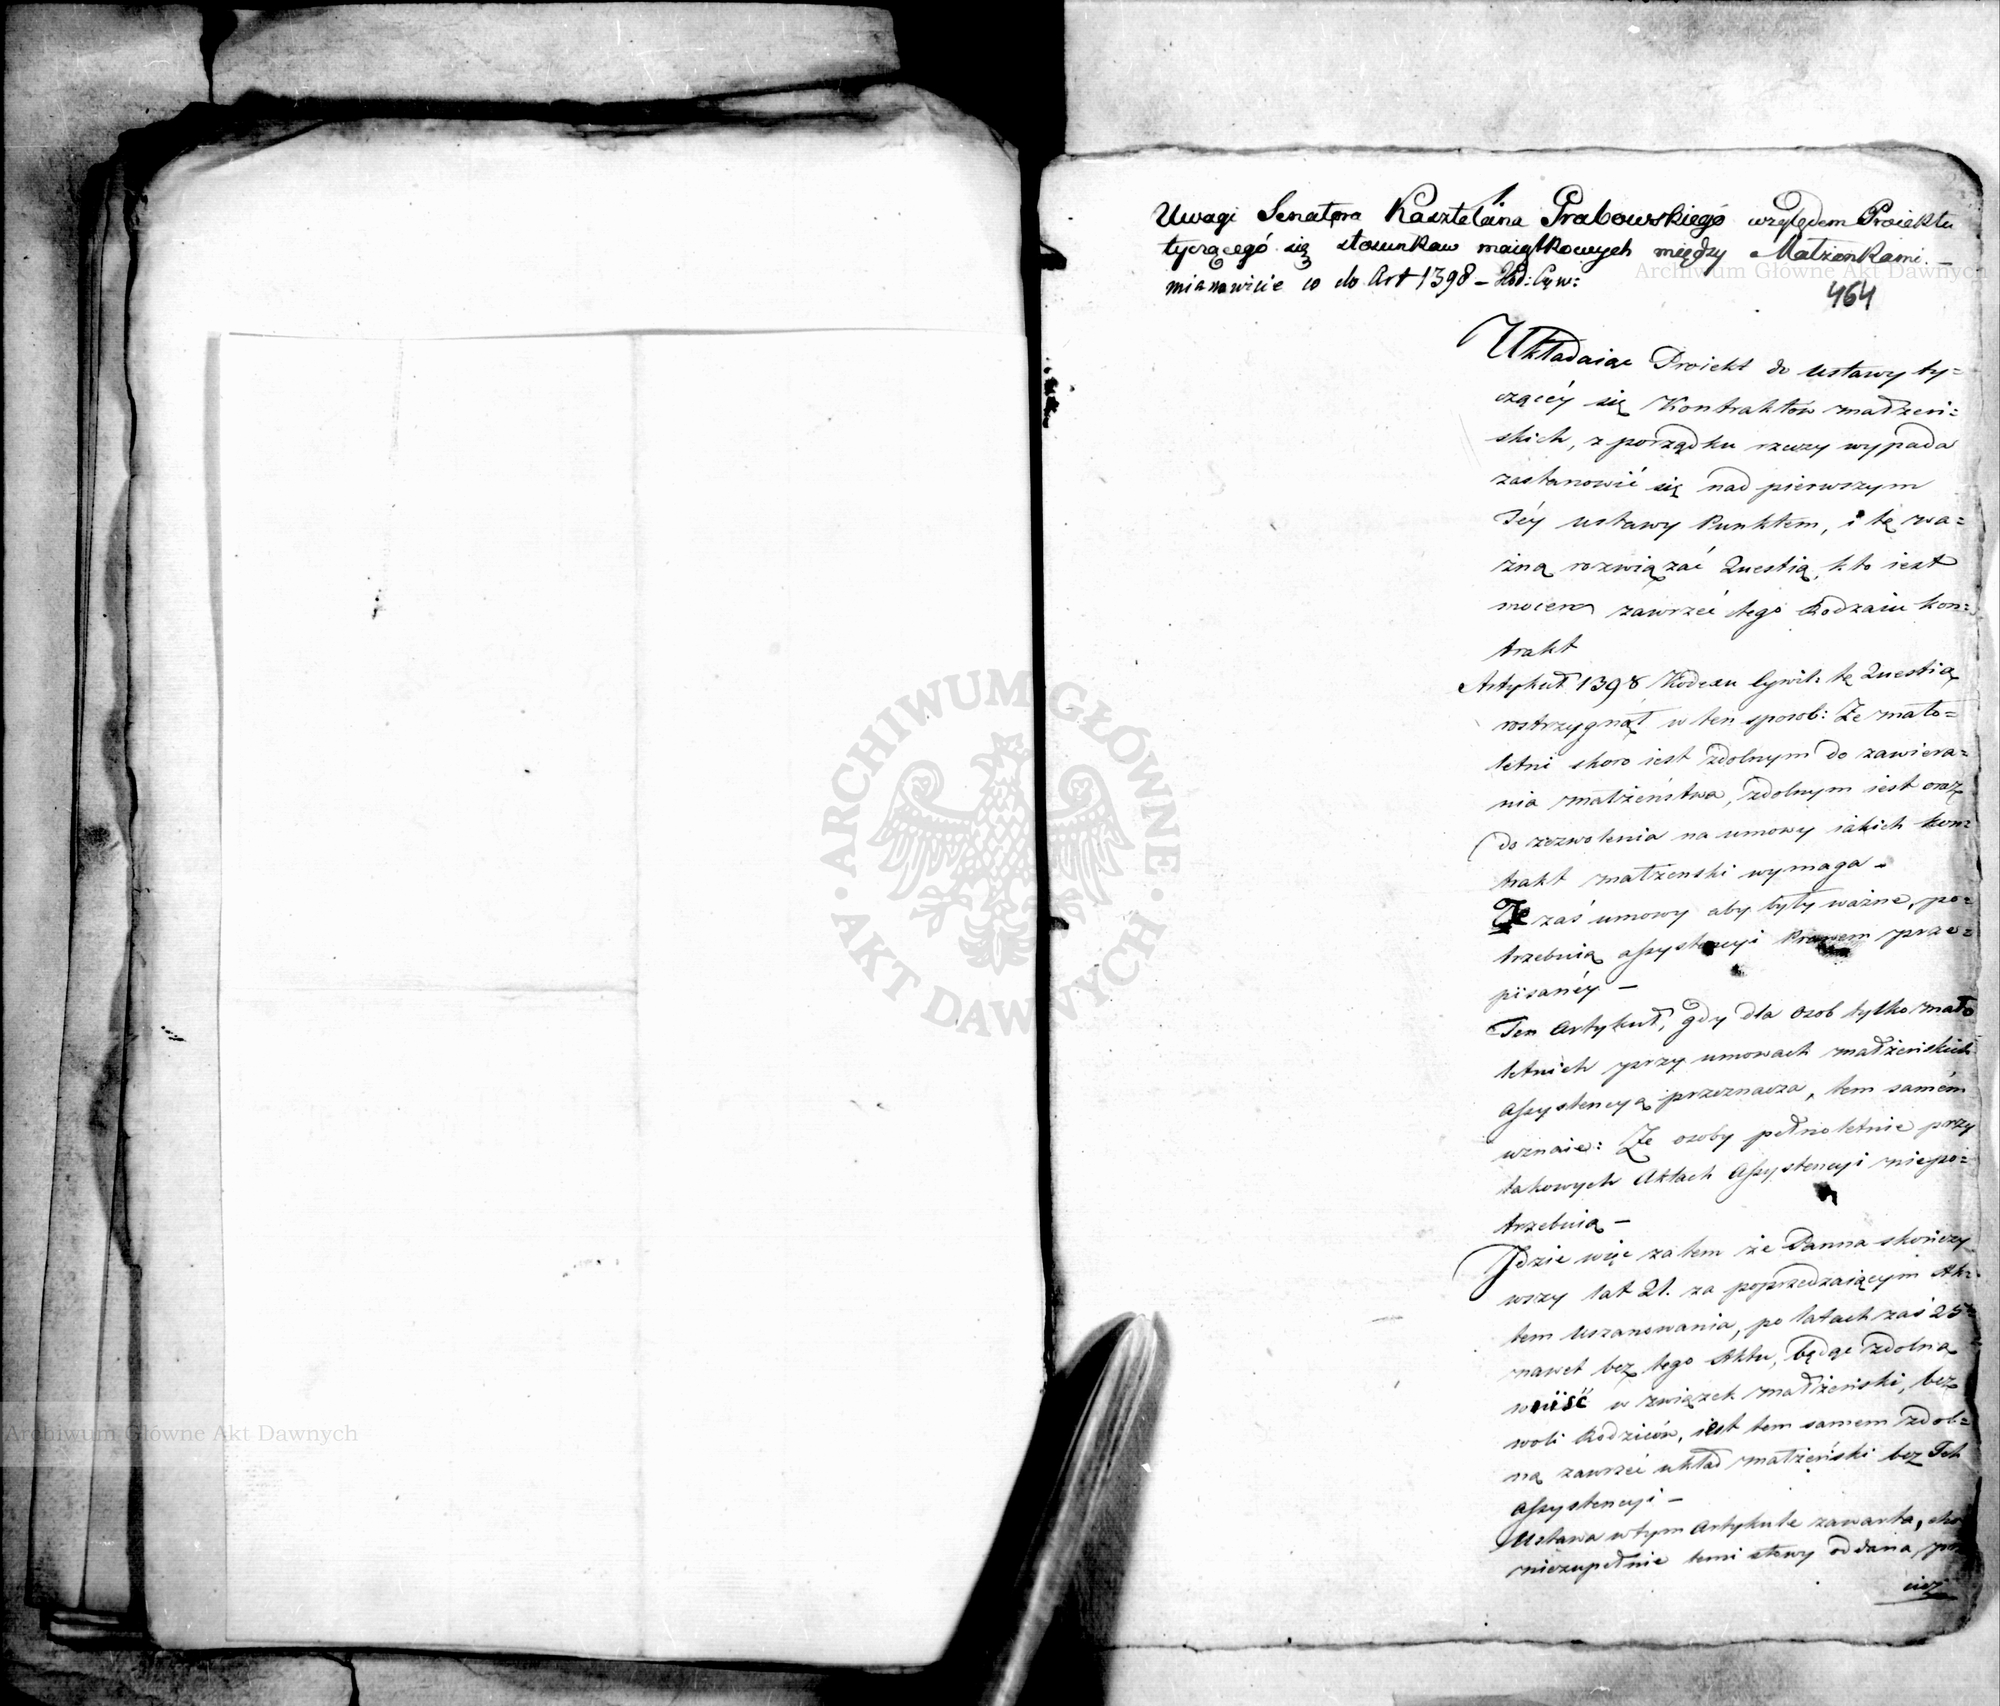 Uwagi Senatora Kasztelana Grabowskiego względem Proiektu
tyczącégo się stosunkow maiątkowych między Małżonkami. —
mianowicie co do Art 1398 — Kod: Cyw:
464
Układaiąc Proiekt do ustawy ty=
czącéy się Kontraktów małżeń=
skich, z porządku rzeczy wypada
zastanowić się nad pierwszym
Téy ustawy Punktem, i tę wa=
żną rozwiązać Questią, kto iest
mocen zawrzeć tego Rodzaiu kon=
trakt
Artykuł 1398 Kodexu Cywil: tę Questią
rostrzygnął w ten sposob: Że mało=
letni skoro iest zdolnym do zawiera=
nia małżeństwa, zdolnym iest oraz
do zezwolenia na umowy iakich kon=
trakt małżenski wymaga —
Te zaś umowy aby były ważne, po=
trzebuią assystencyi Prawem prze=
pisanéy —
Ten Artykuł, gdy dla osob tylko mało
letnich przy umowach małżeńskich
assystencyą przeznacza, tem samém
uznaie: Że osoby pełnoletnie przy
takowych Aktach Assystencyi niepo=
trzebuią —
Idzie więc zatem że Panna skończy
wszy lat 21. za poprzedzaiącym Ak=
tem Uszanowania, po latach zaś 25
nawet bez tego Aktu, będąc zdolną
wniiść w związek małżeński, bez
woli Rodziców, iest tem samem zdol=
ną zawrzeć układ małżeński bez Ich
Assystencyi —
Ustawa w tym Artykule zawarta, cho
niezupełnie temi słowy oddana,
ciez
Archiwum Główne Akt Dawnych
Archiwum Główne Akt Dawnych
ARCHIWUM GŁÓWNE · AKT DAWNYCH ·